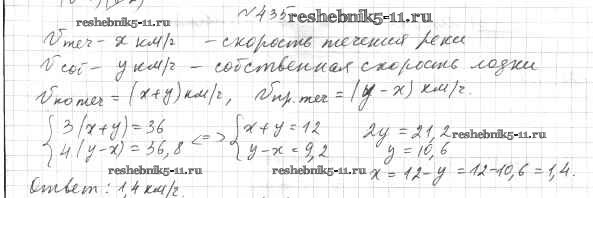 №435 reshebnik5-11.ru
reshebnik5-11.ru
Vтеч - x км/г - скорость течения реки
Vсоб - y км/г - собственная скорость лодки
Vпо теч = (x+y) км/г, Vпр. теч = (y-x) км/г.
{ 3(x+y)=36 <=> { x+y=12 2y=21,2 reshebnik5-11.ru
4(y-x)=36,8 y-x=9,2 y=10,6
reshebnik5-11.ru reshebnik5-11.ru x=12-y=12-10,6=1,4.
Ответ: 1,4 км/г.